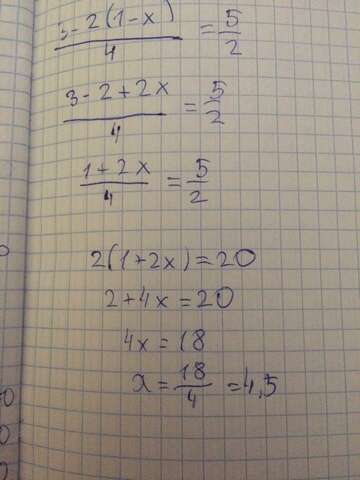 3-2(1-x)/4 = 5/2
3-2+2x/4 = 5/2
1+2x/4 = 5/2
2(1+2x)=20
2+4x=20
4x=18
x=18/4=4,5